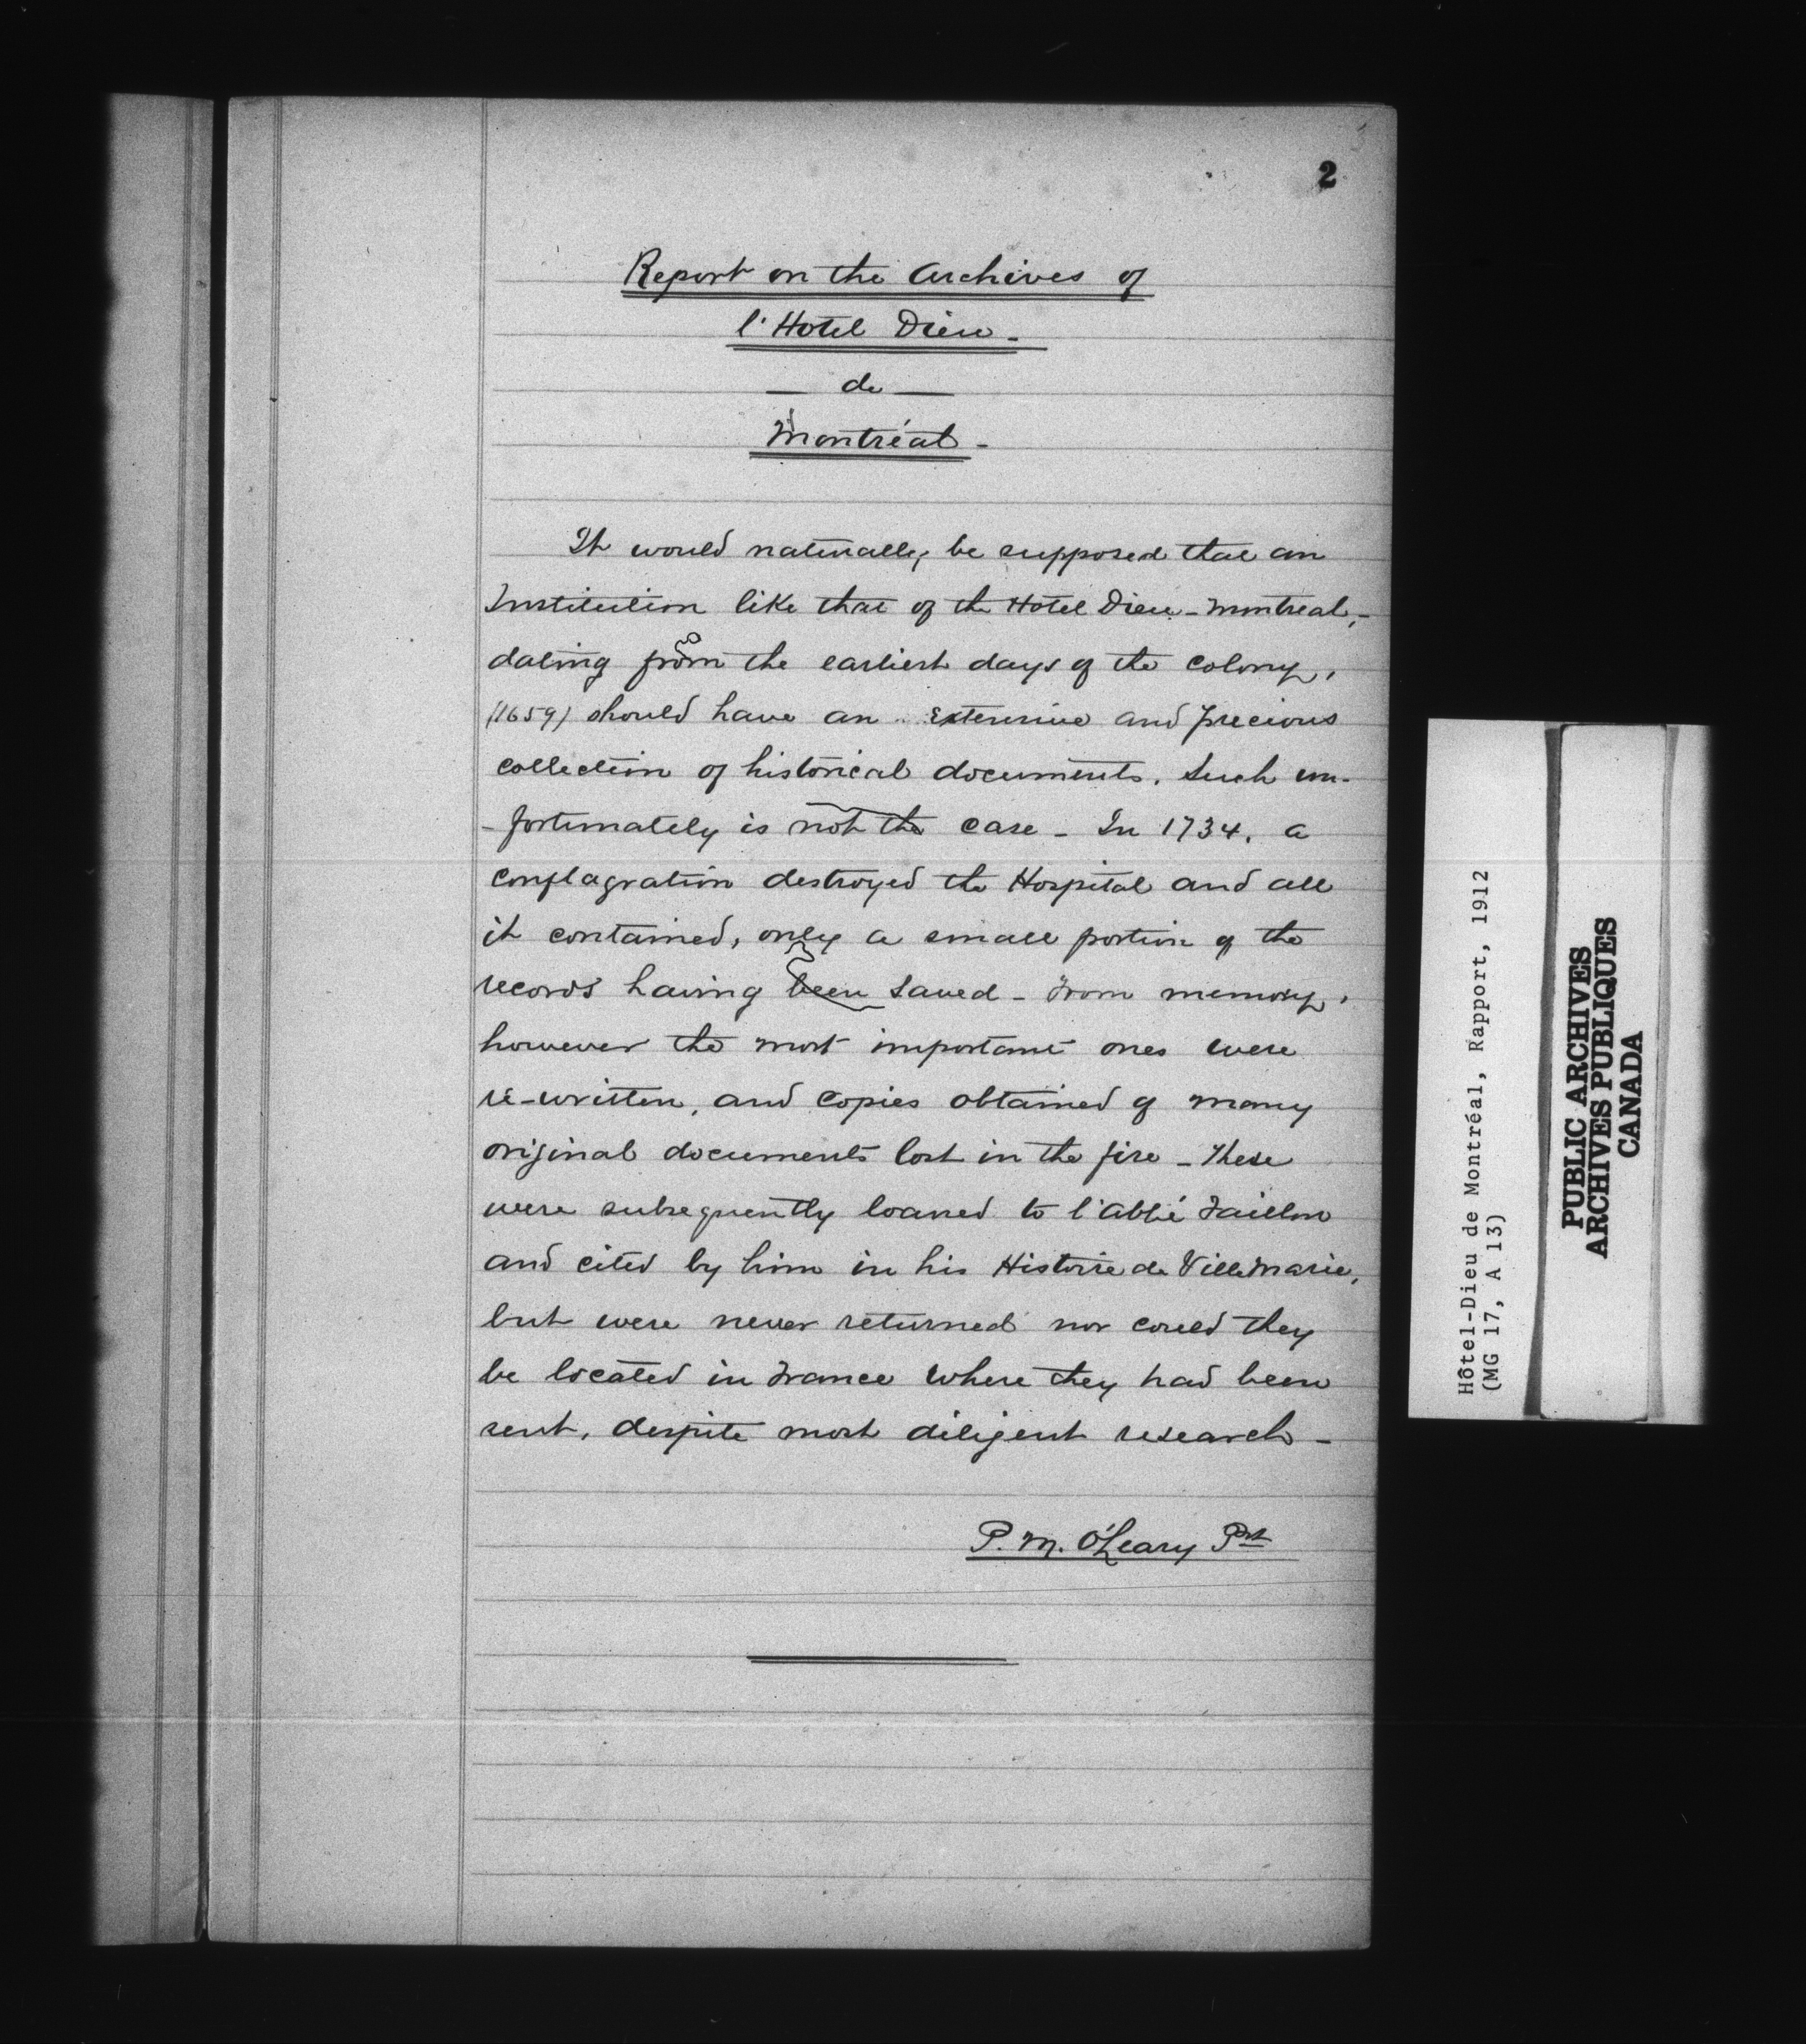 2
Report on the Archives of
l'Hotel Dieu -
— de —
Montréal -
It would naturally be supposed that an
Institution like that of the Hotel Dieu - Montreal, -
dating from the earliest days of the colony,
(1659) should have an extensive and precious
collection of historical documents. Such un-
- fortunately is not the case - In 1734, a
conflagration destroyed the Hospital and all
it contained, only a small portion of the
records having been saved - From memory,
however the most important ones were
re-written, and copies obtained of many
original documents lost in the fire - These
were subsequently loaned to l'abbé Faillon
and cited by him in his Histoire de Ville Marie,
but were never returned nor could they
be located in France where they had been
sent, despite most diligent research -
P. M. O'Leary Pst
Hôtel-Dieu de Montréal, Rapport, 1912
(MG 17, A 13)
PUBLIC ARCHIVES
ARCHIVES PUBLIQUES
CANADA